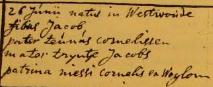 26 Junii natus in Westwoude
filius Jacob
pater teunis cornelissen
mater tryntje Jacobs
patrina niessi Cornelis ex